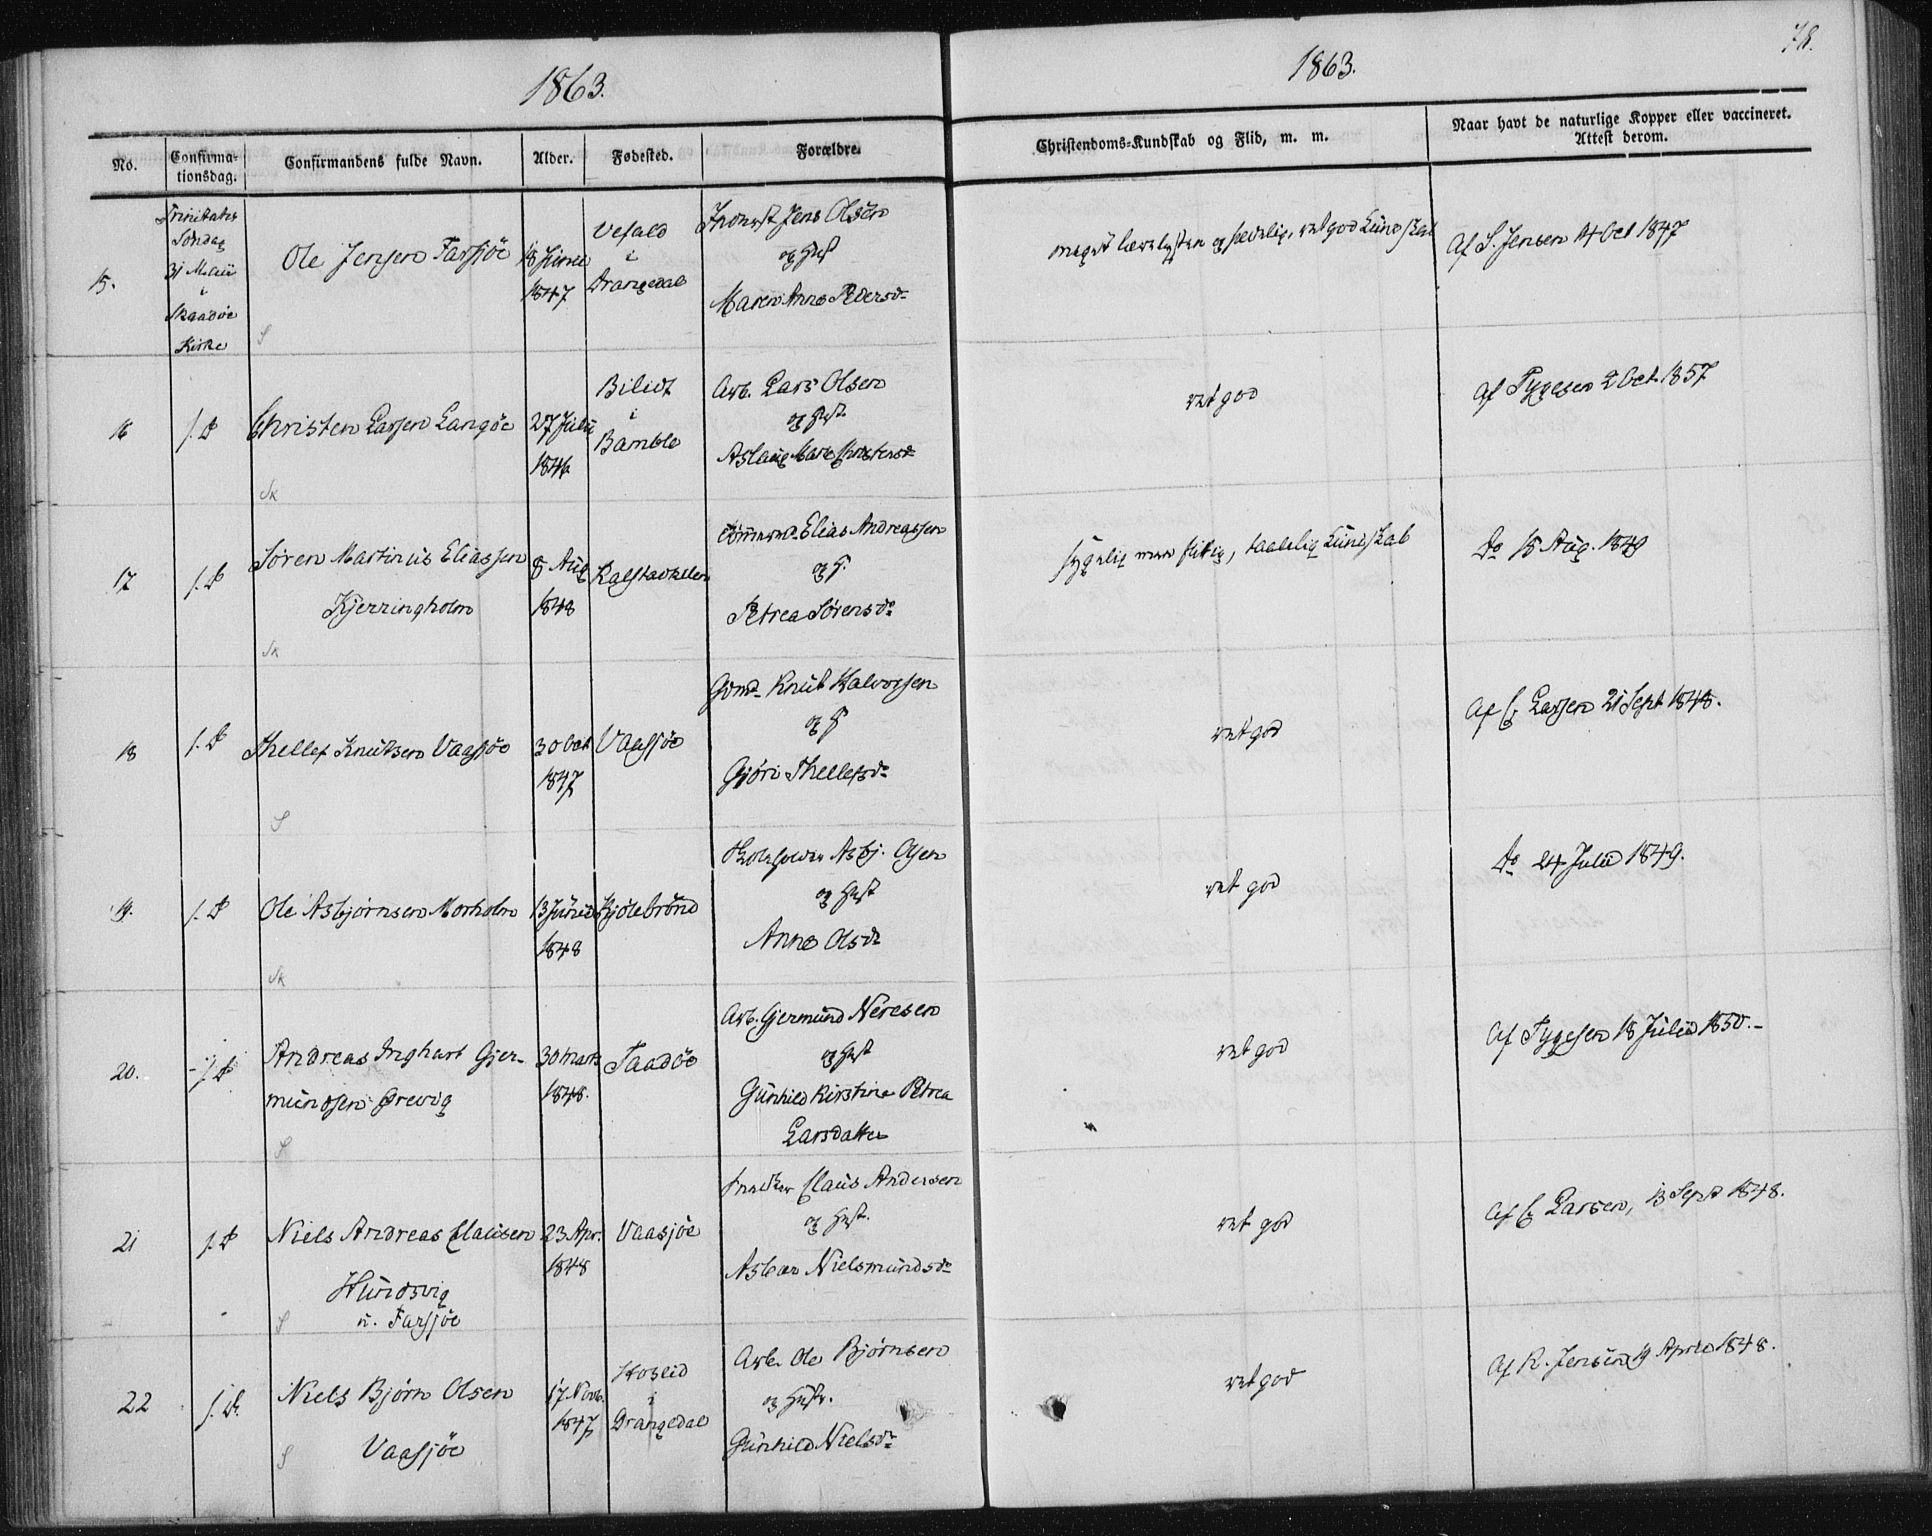 1863.
1863.
78.
No.
Confirma-
tionsdag.
Confirmandens fulde Navn.
Alder.
Fødested.
Forældre.
Christendoms-Kundskab og Flid, m. m.
Naar havt de naturlige Kopper eller vaccineret.
Attest derom.
15.
Trinitatis
Søndag
31 Maii
i
Skaadøe
Kirke
Ole Jensen Farsjøe
S
18 Junii
1847
Vefald
i
Drangedal
Inderst Jens Olsen
og Hust
Maren Anne Pedersdr
meget lærelysten og sædelig, ret god Kundskab
Af S. Jensen 14 Oct 1847
16
s. D
Christen Larsen Langøe
Sk
27 Julii
1846
Biliet
i
Bamble
Arb. Lars Olsen
og Hust.
Aslaug Marie Christensdr
ret god
Af Tygesen 2 Oct. 1857
17
s. D
Søren Martinus Eliassen
Kjerringholm
Sk
8 Aug
1848
Kalstadkilen
Tømmermd. Elias Andreassen
og H.
Petrea Sørensdr
sygelig men flittig, taalelig Kundskab
Do 15 Aug. 1849
18
s. D
Thellef Knutsen Vaasjøe
S
30 Oct
1847
Vaasjøe
Grmd. Knut Halvorsen
og H
Gjøri Thellefsdr
ret god
Af C. Larsen 21 Sept 1848.
19.
s. D
Ole Asbjørnsen Morholm
Sk
13 Junii
1848
Kjølebrønd
Asbj. Olsen
og Hust
Anne Olsdr
ret god
Do 24 Julii 1849.
20.
s. D
Andreas Inghart Gjer-
mundsen Ørevig
S
30 Marts
1848.
Taadøe
Arb. Gjermund Neresen
og Hust
Gunhild Kirstine Petrea
Larsdatter
ret god
Af Tygesen 18 Julii 1850.
21
s. D
Niels Andreas Clausen
Hundsvig
u. Farsjøe
S
23 Apr.
1848
Vaasjøe
Snedker Claus Andersen
og Hust.
Asbær Nielsmundsdr
ret god
Af C. Larsen, 13 Sept 1848.
22
s. D.
Niels Bjørn Olsen
Vaasjøe
S
17 Novb.
1847
Hoslid
i
Drangedal
Arb. Ole Bjørnsen
og Hustr.
Gunhild Nielsdr
ret god
Af R. Jensen 19 April 1848.